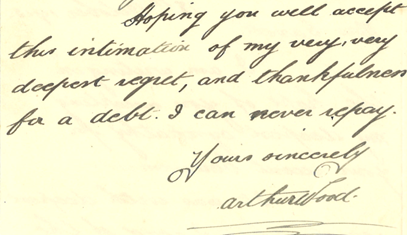 Hoping you will accept
this intimation of my very, very
deepest regret, and thankfulness
for a debt. I can never repay.
Yours sincerely
Arthur Wood.